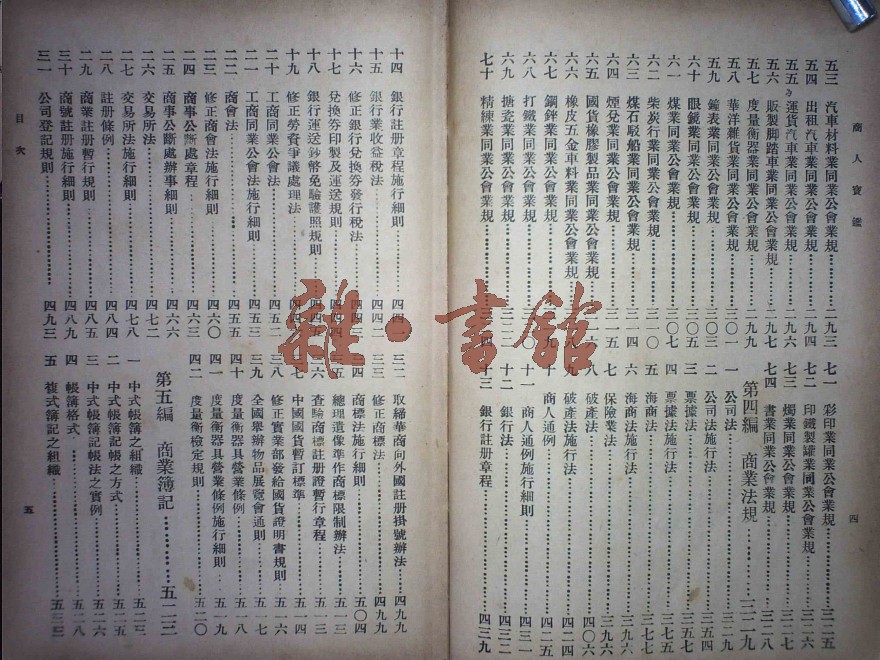 商人寶鑑
五三 汽車材料業同業公會業規 二九三
五四 出租汽車業同業公會業規 二九四
五五 運貨汽車業同業公會業規 二九六
五六 販製脚踏車業同業公會業規 二九七
五七 度量衡器業同業公會業規 二九九
五八 華洋雜貨業同業公會業規 三〇一
五九 鐘表業同業公會業規
六十 眼鏡業同業公會業規
六一 煤業同業公會業規
六二 柴炭行業同業公會業規
六三 煤石駁船業同業公會業規
六四 煙兌業同業公會業規
六五 國貨橡膠製品業同業公會業規
六六 橡皮五金車料業同業公會業規
六七 鋼鋅業同業公會業規
六八 打鐵業同業公會業規
六九 搪瓷業同業公會業規
七十 精練業同業公會業規
七一 彩印業同業公會業規 三二五
七二 印鐵製罐業同業公會業規 三二六
七三 燭業同業公會業規 三二七
七四 書業同業公會業規 三二八
第四編 商業法規 三二九
一 公司法 三二九
二 公司法施行法 三五四
三 票據法 三五七
四 票據法施行法
五 海商法 三七七
六 海商法施行法 三九六
七 保險業法 三九六
八 破產法 四〇六
九 破產法施行法 四二四
十 商人通例 四二五
十一 商人通例施行細則 四三一
十二 銀行法 四三二
十三 銀行註册章程 四三九
四
十四 銀行註册章程施行細則 四四一
十五 銀行業收益稅法 四四二
十六 修正銀行兌換券發行稅法
十七 兌換券印製及運送規則
十八 銀行運送鈔幣免驗護照規則
十九 修正勞資爭議處理法
二十 工商同業公會法 四五二
二一 工商同業公會法施行細則 四五三
二二 商會法 四五五
二三 修正商會法施行細則 四六〇
二四 商事公斷處章程 四六三
二五 商事公斷處辦事細則 四六六
二六 交易所法 四七二
二七 交易所法施行細則 四七八
二八 註册條例 四八四
二九 商業註册暫行規則 四八五
三十 商號註册施行細則 四八九
三一 公司登記規則 四九三
三二 取締華商向外國註册掛號辦法 四九九
三三 修正商標法 四九九
三四 商標法施行細則 五〇四
三五 總理遺像準作商標限制辦法 五一一
三六 查驗商標註册證暫行章程 五一三
三七 中國國貨暫訂標準 五一四
三八 修正實業部發給國貨證明書規則 五一六
三九 全國舉辦物品展覽會通則 五一七
四十 度量衡器具營業條例 五一八
四一 度量衡器具營業條例施行細則 五一九
四二 度量衡檢定規則 五二〇
第五編 商業簿記 五二三
一 中式帳簿之組織 五二三
二 中式帳簿記帳之方式 五二五
三 中式帳簿記帳法之實例 五二六
四 帳簿格式 五二八
五 複式簿記之組織
目次
五
雜·書館